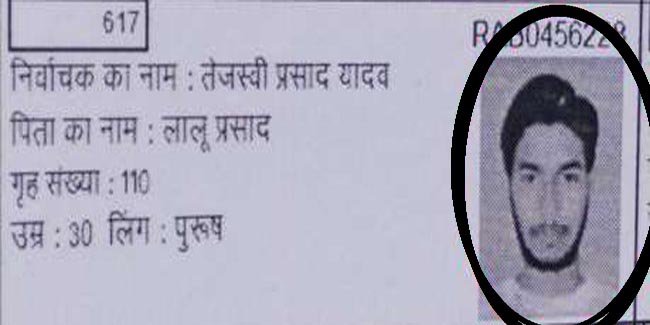 617
RAB0456228
निर्वाचक का नाम : तेजस्वी प्रसाद यादव
पिता का नाम : लालू प्रसाद
गृह संख्या : 110
उम्र : 30 लिंग : पुरूष